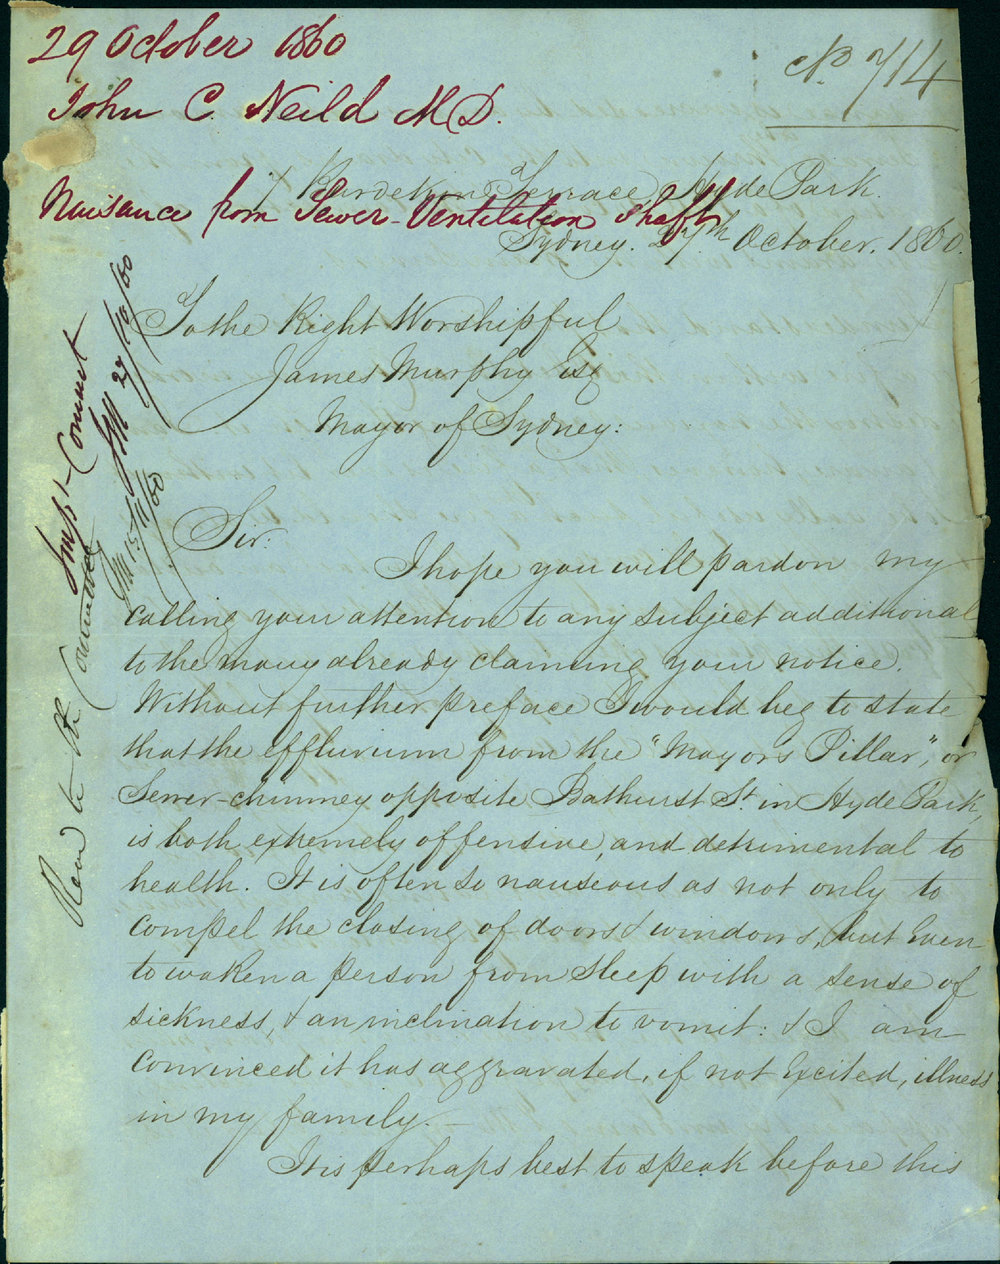 29 October 1860
No 714
John C. Neild M.D.
7 Burdekin Terrace, Hyde Park.
Nuisance from Sewer-Ventilation Shaft
Sydney. 27th October. 1860.
To the Right Worshipful
James Murphy Esq
Mayor of Sydney:
Sir:
I hope you will pardon my
calling your attention to any subject additional
to the many already claiming your notice.
Without further preface I would beg to state
that the effluvium from the "Mayor's Pillar", or
Sewer-chimney opposite Bathurst St. in Hyde Park,
is both extremely offensive, and detrimental to
health. It is often so nauseous as not only to
compel the closing of doors & windows, but even
to waken a person from sleep with a sense of
sickness, & an inclination to vomit: & I am
convinced it has aggravated, if not excited, illness
in my family.—
It is perhaps best to speak before this
Impt Committ
JM 27/10/60
Read to the Committee
JM 15/11/60